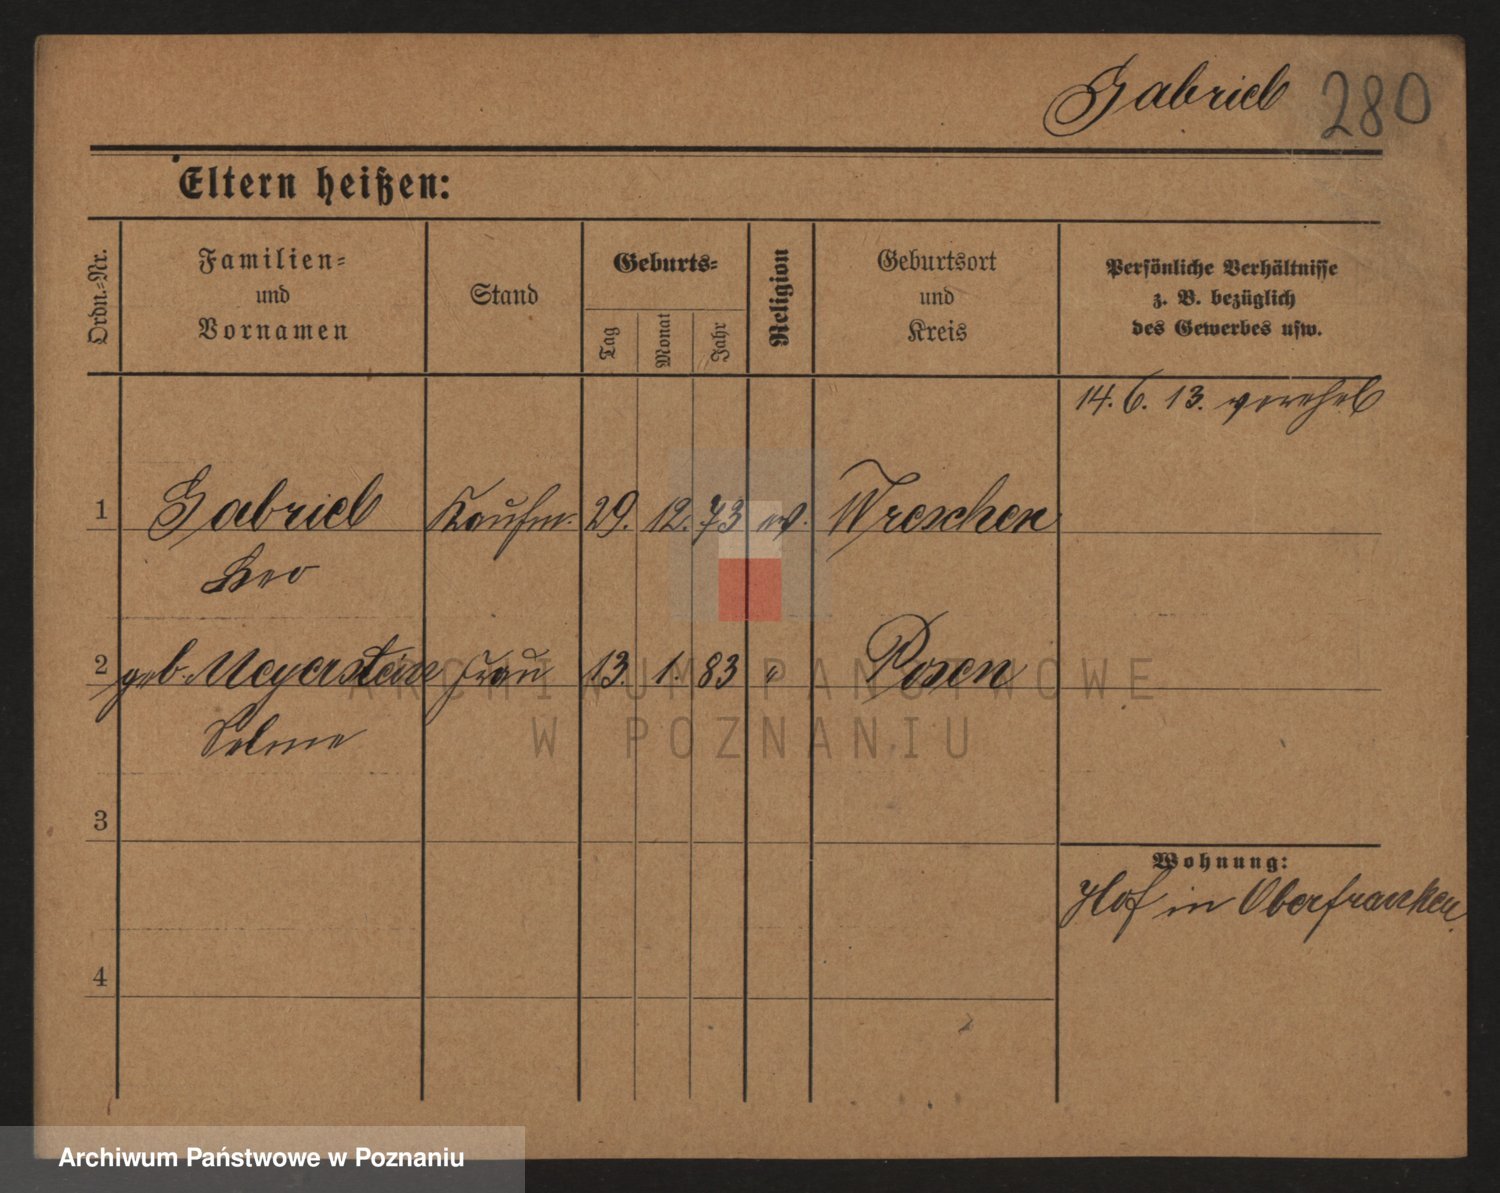 Gabriel 280
Eltern heißen:
Ordn.=Nr.
Familien=
und
Vornamen
Stand
Geburts=
Tag
Monat
Jahr
Religion
Geburtsort
und
Kreis
Persönliche Verhältnisse
z. B. bezüglich
des Gewerbes usw.
14. 6. 13. verehel
1 Gabriel Kaufm. 29. 12. 73 Wreschen
Leo
2 geb. Meyerstein Frau 13. 1. 83 " Posen
Selma
3
Wohnung:
Hof in Oberfranken.
4
ARCHIWUM PAŃSTWOWE
W POZNANIU
Archiwum Państwowe w Poznaniu